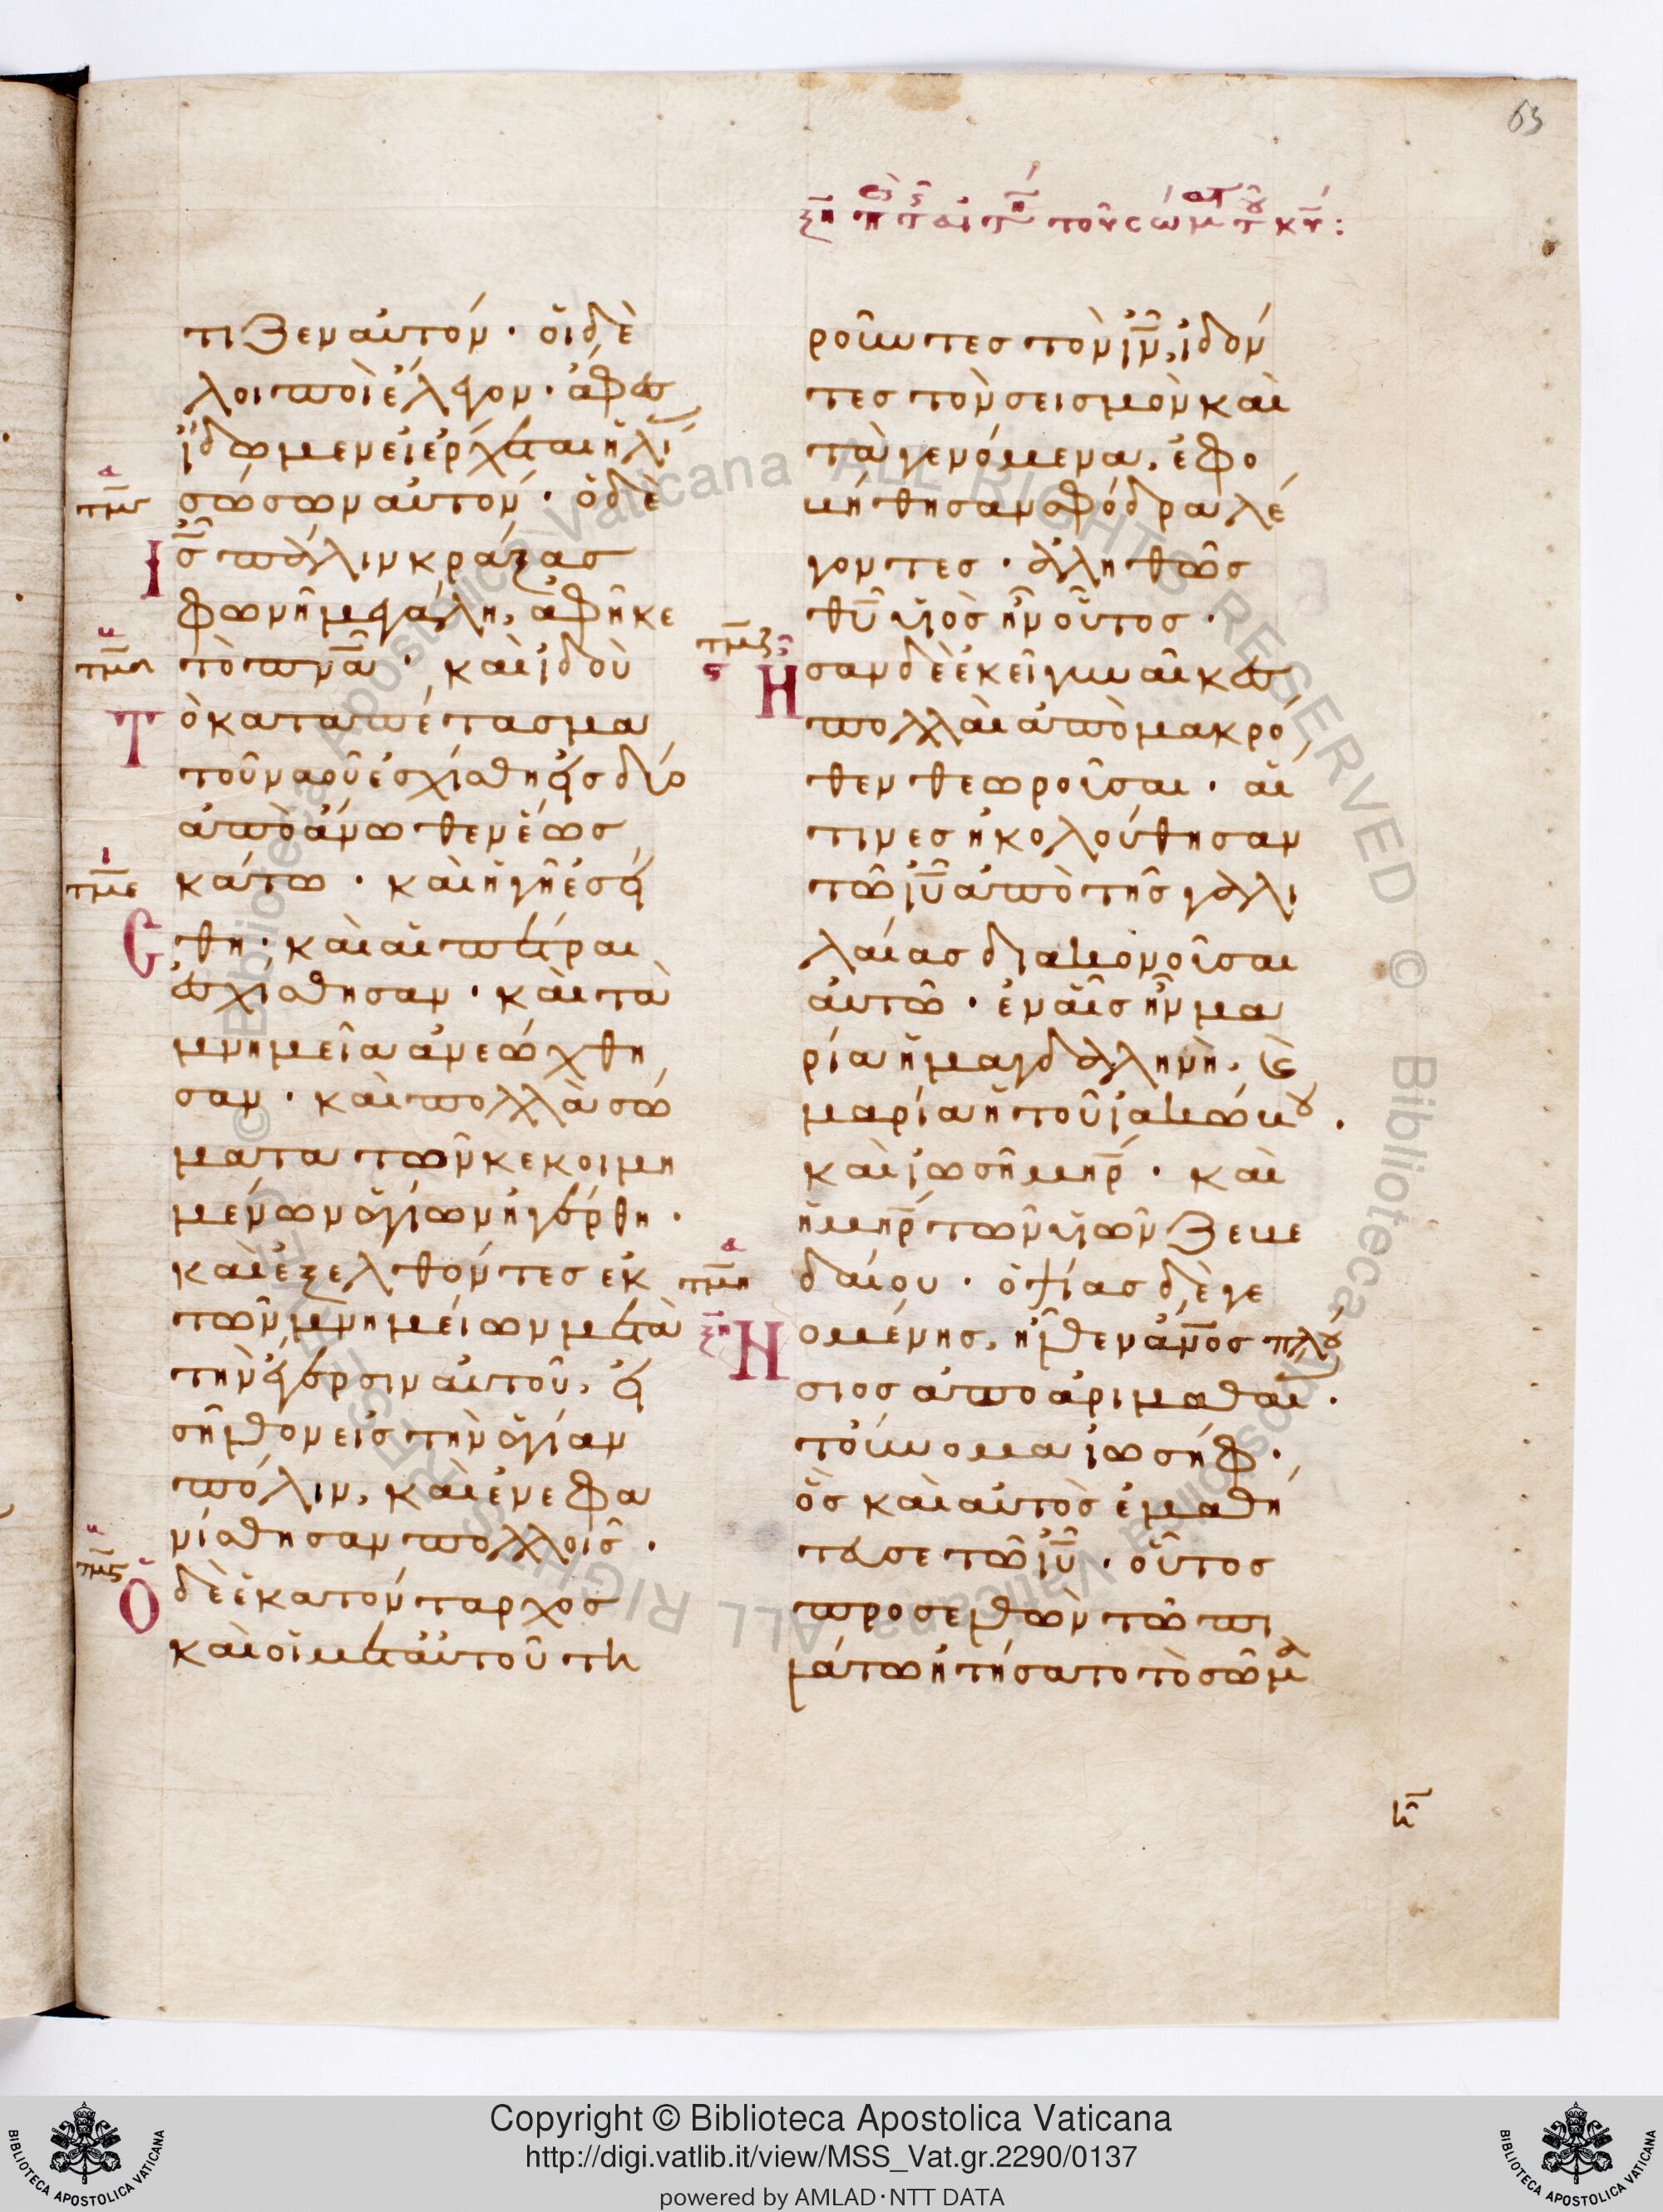 63
ξη π τ αιτη τοῦ σώματ κυ:
τιζεν αὐτόν· οἱ δὲ
λοιποὶ ἔλεγον· ἄφες
ἴδωμεν εἰ ἔρχεται ἠλί
τμγ
σώσων αὐτόν· ὁ δὲ
Ις πάλιν κράξας
φωνῆ μεγάλη, ἀφῆκε
τμδ
τὸ πνᾶ· καὶ ἰδοὺ
Τὸ καταπέτασμα
τοῦ ναοῦ ἐσχίσθη εἰς δύο
ἀπὸ ἄνωθεν ἕως
τμε
κάτω· καὶ ἡ γῆ ἐσεί
σθη· καὶ αἱ πέτραι
ἐσχίσθησαν· καὶ τὰ
μνημεῖα ἀνεώχθη
σαν· καὶ πολλὰ σώ
ματα τῶν κεκοιμη
μένων ἁγίων ἠγέρθη·
καὶ ἐξελθόντες ἐκ
τῶν μνημείων μετὰ
τὴν ἔγερσιν αὐτοῦ, εἰ
σῆλθον εἰς τὴν ἁγίαν
πόλιν, καὶ ἐνεφα
νίσθησαν πολλοῖς·
τμς
Ὁ δὲ ἑκατόνταρχος
καὶ οἱ μετ αὐτοῦ τη
ροῦντες τὸν ιν, ἰδόν
τες τὸν σεισμὸν καὶ
τὰ γενόμενα, ἐφο
βήθησαν σφόδρα λέ
γοντες· ἀληθῶς
θυ υἱὸς ἦν οὗτος·
τμζ
Ησαν δὲ ἐκεῖ γυναῖκες
πολλαὶ ἀπὸ μακρό
θεν θεωροῦσαι· αἵ
τινες ἠκολούθησαν
τῶ ιυ ἀπὸ τῆς γαλι
λαίας διακονοῦσαι
αὐτῶ· ἐν αἷς ἦν μα
ρία ἡ μαγδαληνὴ, καὶ
μαρία ἡ τοῦ ἰακώβου·
καὶ ἰωσῆ μηρ· καὶ
ἡ μηρ τῶν υἱῶν ζεβε
τμη
δαίου· ὀψίας δὲ γε
ξη
Ηομένης, ἦλθεν ανος πλού
σιος ἀπο ἀριμαθαι·
τοὔνομα ἰωσήφ·
ὃς καὶ αὐτὸς ἐμαθή
τευσε τῶ ιυ· οὗτος
προσελθὼν τῶ πι
λάτω ἠτήσατο τὸ σῶμα
Copyright © Biblioteca Apostolica Vaticana
http://digi.vatlib.it/view/MSS_Vat.gr.2290/0137
powered by AMLAD·NTT DATA
BIBLIOTECA APOSTOLICA VATICANA
BIBLIOTECA APOSTOLICA VATICANA